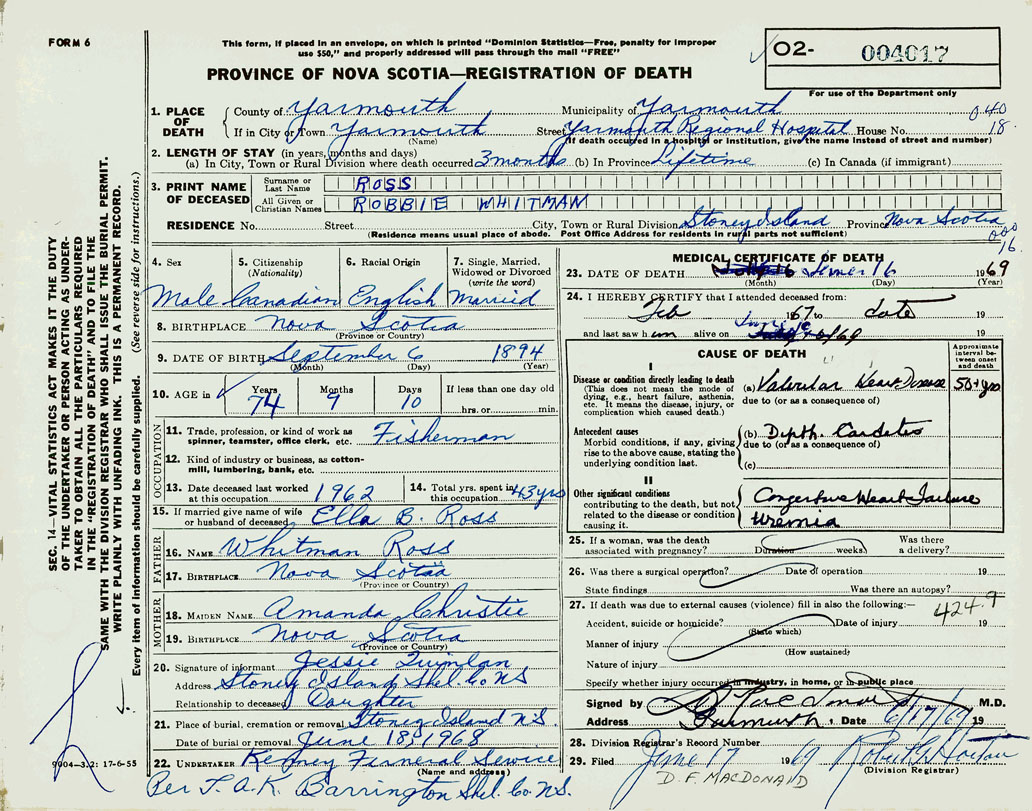 FORM 6
This form, if placed in an envelope, on which is printed "Dominion Statistics—Free, penalty for improper
use $50," and properly addressed will pass through the mail "FREE"
PROVINCE OF NOVA SCOTIA—REGISTRATION OF DEATH
02- 004017
For use of the Department only
1. PLACE OF DEATH County of Yarmouth Municipality of Yarmouth 040
If in City or Town Yarmouth Street Yarmouth Regional Hospital House No. 18
(Name) (If death occurred in a hospital or institution, give the name instead of street and number)
2. LENGTH OF STAY (in years, months and days)
(a) In City, Town or Rural Division where death occurred 3 months (b) In Province Lifetime (c) In Canada (if immigrant)
3. PRINT NAME OF DECEASED
Surname or Last Name ROSS
All Given or Christian Names ROBBIE WHITMAN
RESIDENCE No. Street City, Town or Rural Division Stoney Island Province Nova Scotia
(Residence means usual place of abode. Post Office Address for residents in rural parts not sufficient)
000
16
4. Sex 5. Citizenship (Nationality) 6. Racial Origin 7. Single, Married, Widowed or Divorced (write the word)
Male Canadian English Married
8. BIRTHPLACE Nova Scotia
(Province or Country)
9. DATE OF BIRTH September 6 1894
(Month) (Day) (Year)
10. AGE in Years Months Days If less than one day old
74 9 10 hrs. or min.
OCCUPATION
11. Trade, profession, or kind of work as spinner, teamster, office clerk, etc. Fisherman
12. Kind of industry or business, as cotton-mill, lumbering, bank, etc.
13. Date deceased last worked at this occupation 1962
14. Total yrs. spent in this occupation 43 yrs
15. If married give name of wife or husband of deceased Ella B. Ross
FATHER
16. NAME Whitman Ross
17. BIRTHPLACE Nova Scotia
(Province or Country)
MOTHER
18. MAIDEN NAME Amanda Christie
19. BIRTHPLACE Nova Scotia
(Province or Country)
20. Signature of informant Jessie Quinlan
Address Stoney Island Shel. Co NS
Relationship to deceased Daughter
21. Place of burial, cremation or removal Stoney Island N.S.
Date of burial or removal June 18, 1968
22. UNDERTAKER Kenney Funeral Service
(Name and address)
Per T.A.K. Barrington Shel. Co. N.S.
MEDICAL CERTIFICATE OF DEATH
23. DATE OF DEATH 16 1969
(Month) (Day) (Year)
24. I HEREBY CERTIFY that I attended deceased from:
Feb 1957 to date 19
and last saw him alive on 19
CAUSE OF DEATH
Approximate interval between onset and death
I
Disease or condition directly leading to death
(This does not mean the mode of dying, e.g., heart failure, asthenia, etc. It means the disease, injury, or complication which caused death.)
(a) Valvular Heart Disease 50+ yrs
due to (or as a consequence of)
Antecedent causes
Morbid conditions, if any, giving rise to the above cause, stating the underlying condition last.
(b) Dipth. Cardites
due to (or as a consequence of)
(c)
II
Other significant conditions
contributing to the death, but not related to the disease or condition causing it.
Congestive Heart Failure
Uremia
25. If a woman, was the death associated with pregnancy? Duration weeks. Was there a delivery?
26. Was there a surgical operation? Date of operation 19
State findings Was there an autopsy?
27. If death was due to external causes (violence) fill in also the following:— 424.9
Accident, suicide or homicide? Date of injury 19
(State which)
Manner of injury
(How sustained)
Nature of injury
Specify whether injury occurred in industry, in home, or in public place
Signed by M.D.
Address Date 6/17/69 19
28. Division Registrar's Record Number
29. Filed June 17 1969
(Division Registrar)
D. F. MACDONALD
SEC. 14—VITAL STATISTICS ACT MAKES IT THE DUTY
OF THE UNDERTAKER OR PERSON ACTING AS UNDER-
TAKER TO OBTAIN ALL THE PARTICULARS REQUIRED
IN THE "REGISTRATION OF DEATH" AND TO FILE THE
SAME WITH THE DIVISION REGISTRAR WHO SHALL ISSUE THE BURIAL PERMIT.
WRITE PLAINLY WITH UNFADING INK. THIS IS A PERMANENT RECORD.
Every item of information should be carefully supplied. (See reverse side for instructions.)
9904-3.2: 17-6-55